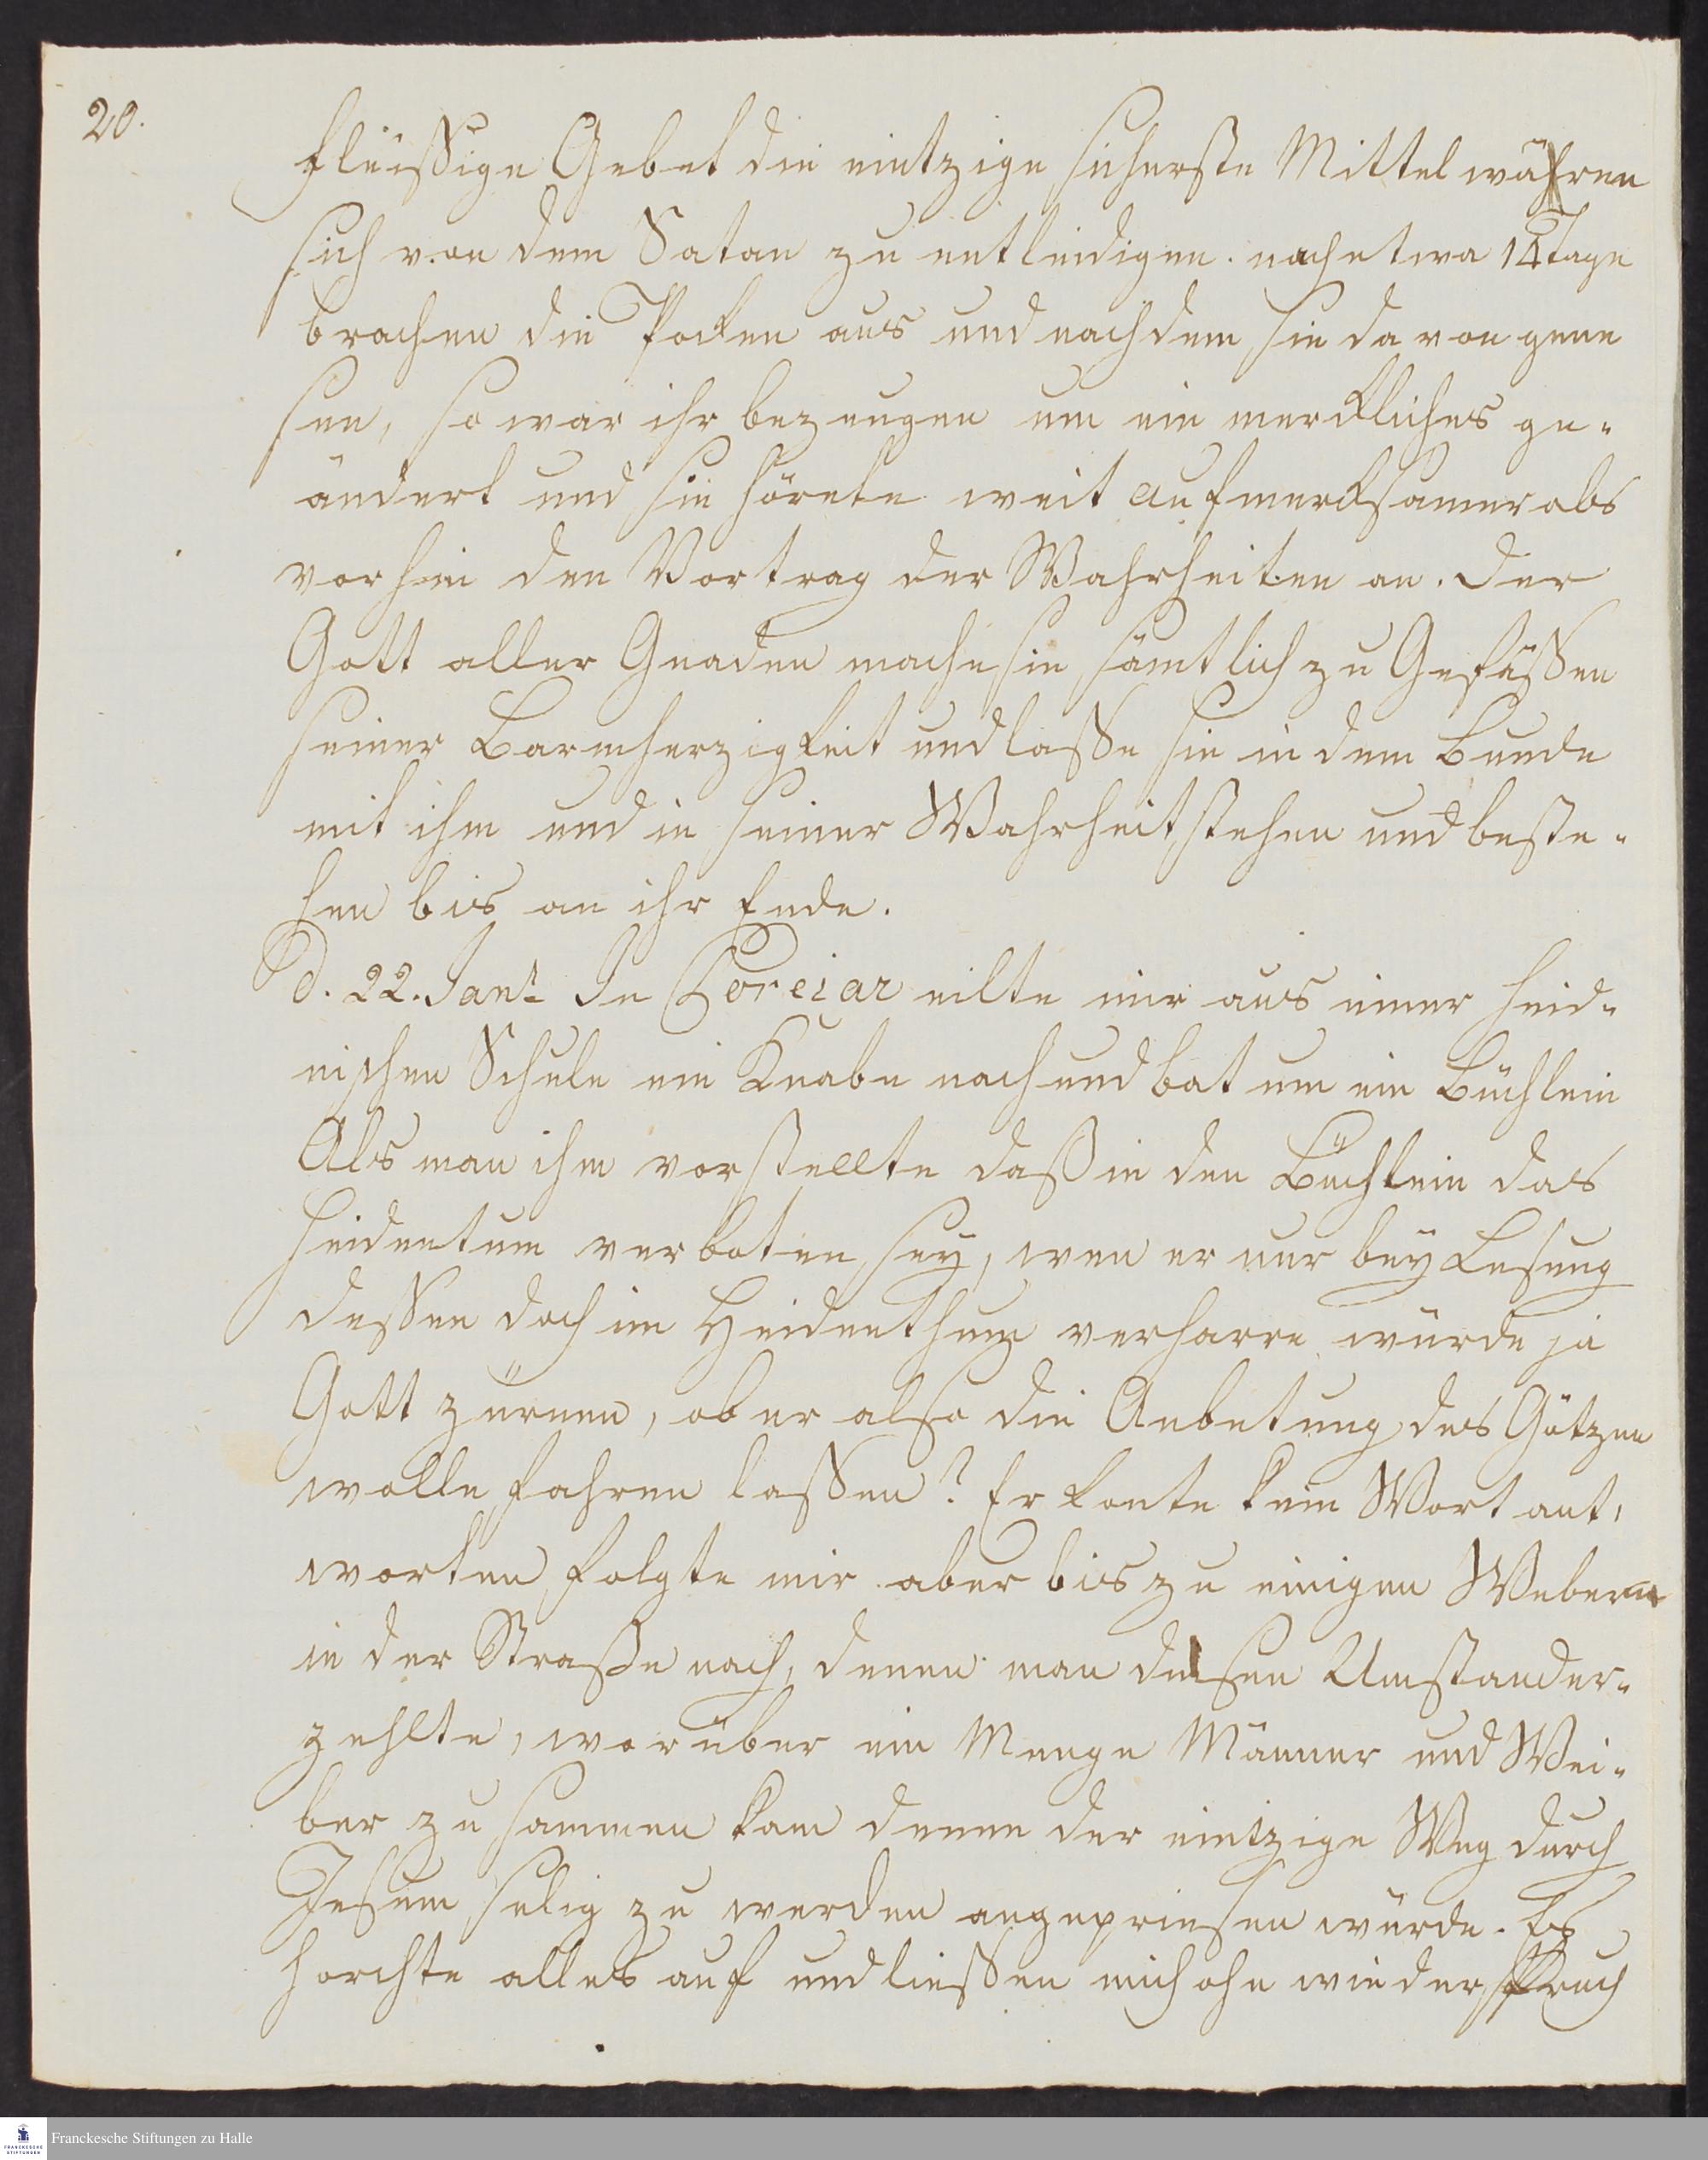 20.
fleißige Gebet die eintzige sicherste Mittel wären
sich von dem Satan zu entledigen. nach etwa 14 Tage
brachen die Pocken aus und nachdem sie davon gene
sen, so war ihr bezeugen um ein merckliches ge-
ändert und sie hörete weit aufmercksamer als
vorhin den Vortrag der Wahrheiten an. Der
Gott aller Gnaden mache sie sämtlich zu Gefäßen
seiner Barmherzigkeit und laße sie in dem Bunde
mit ihm und in seiner Wahrheit stehen und beste-
hen bis an ihr Ende.
d. 22. Jan: In Coreiar eilte mir aus einer heid-
nischen Schule ein Knabe nach und bat um ein Büchlein
Als man ihm vorstellte daß in den Büchlein das
Heidentum verboten sey, wen er nur bey Lesung
deßen doch im Heidenthum verharre würde ja
Gott zürnen, ob er also die Anbetung des Götzen
wolle fahren laßen? Er konte kein Wort ant,
worten folgte mir aber bis zu einigen Webern
in der Straße nach, denen man diesen Umstand er-
zehlte, worüber ein Menge Männer und Wei-
ber zusammen kam denen der eintzige Weg durch
Jesum selig zu werden angepriesen würde. Es
horchte alles auf und ließen mich ohn wiederspruch
Franckesche Stiftungen zu Halle